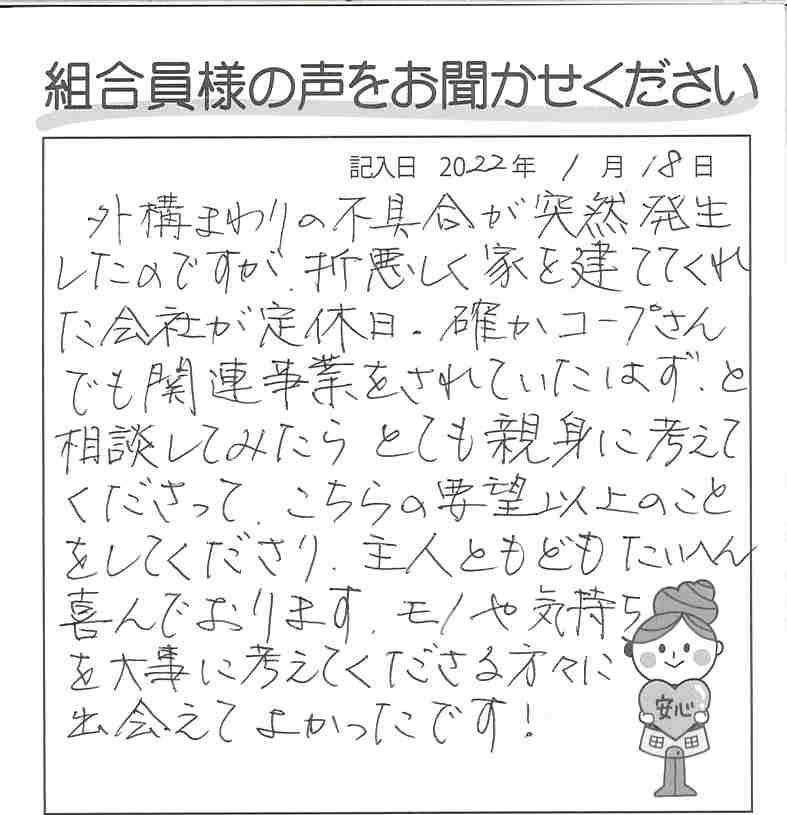 組合員様の声をお聞かせください
記入日 2022年 1月 18日
外構まわりの不具合が突然発生
したのですが、折悪しく家を建ててくれ
た会社が定休日。確かコープさん
でも関連事業をされていたはず、と
相談してみたら とても親身に考えて
くださって、こちらの要望以上のこと
をしてくださり、主人ともどもたいへん
喜んでおります。モノや気持ち
を大事に考えてくださる方々に
出会えてよかったです!
安心